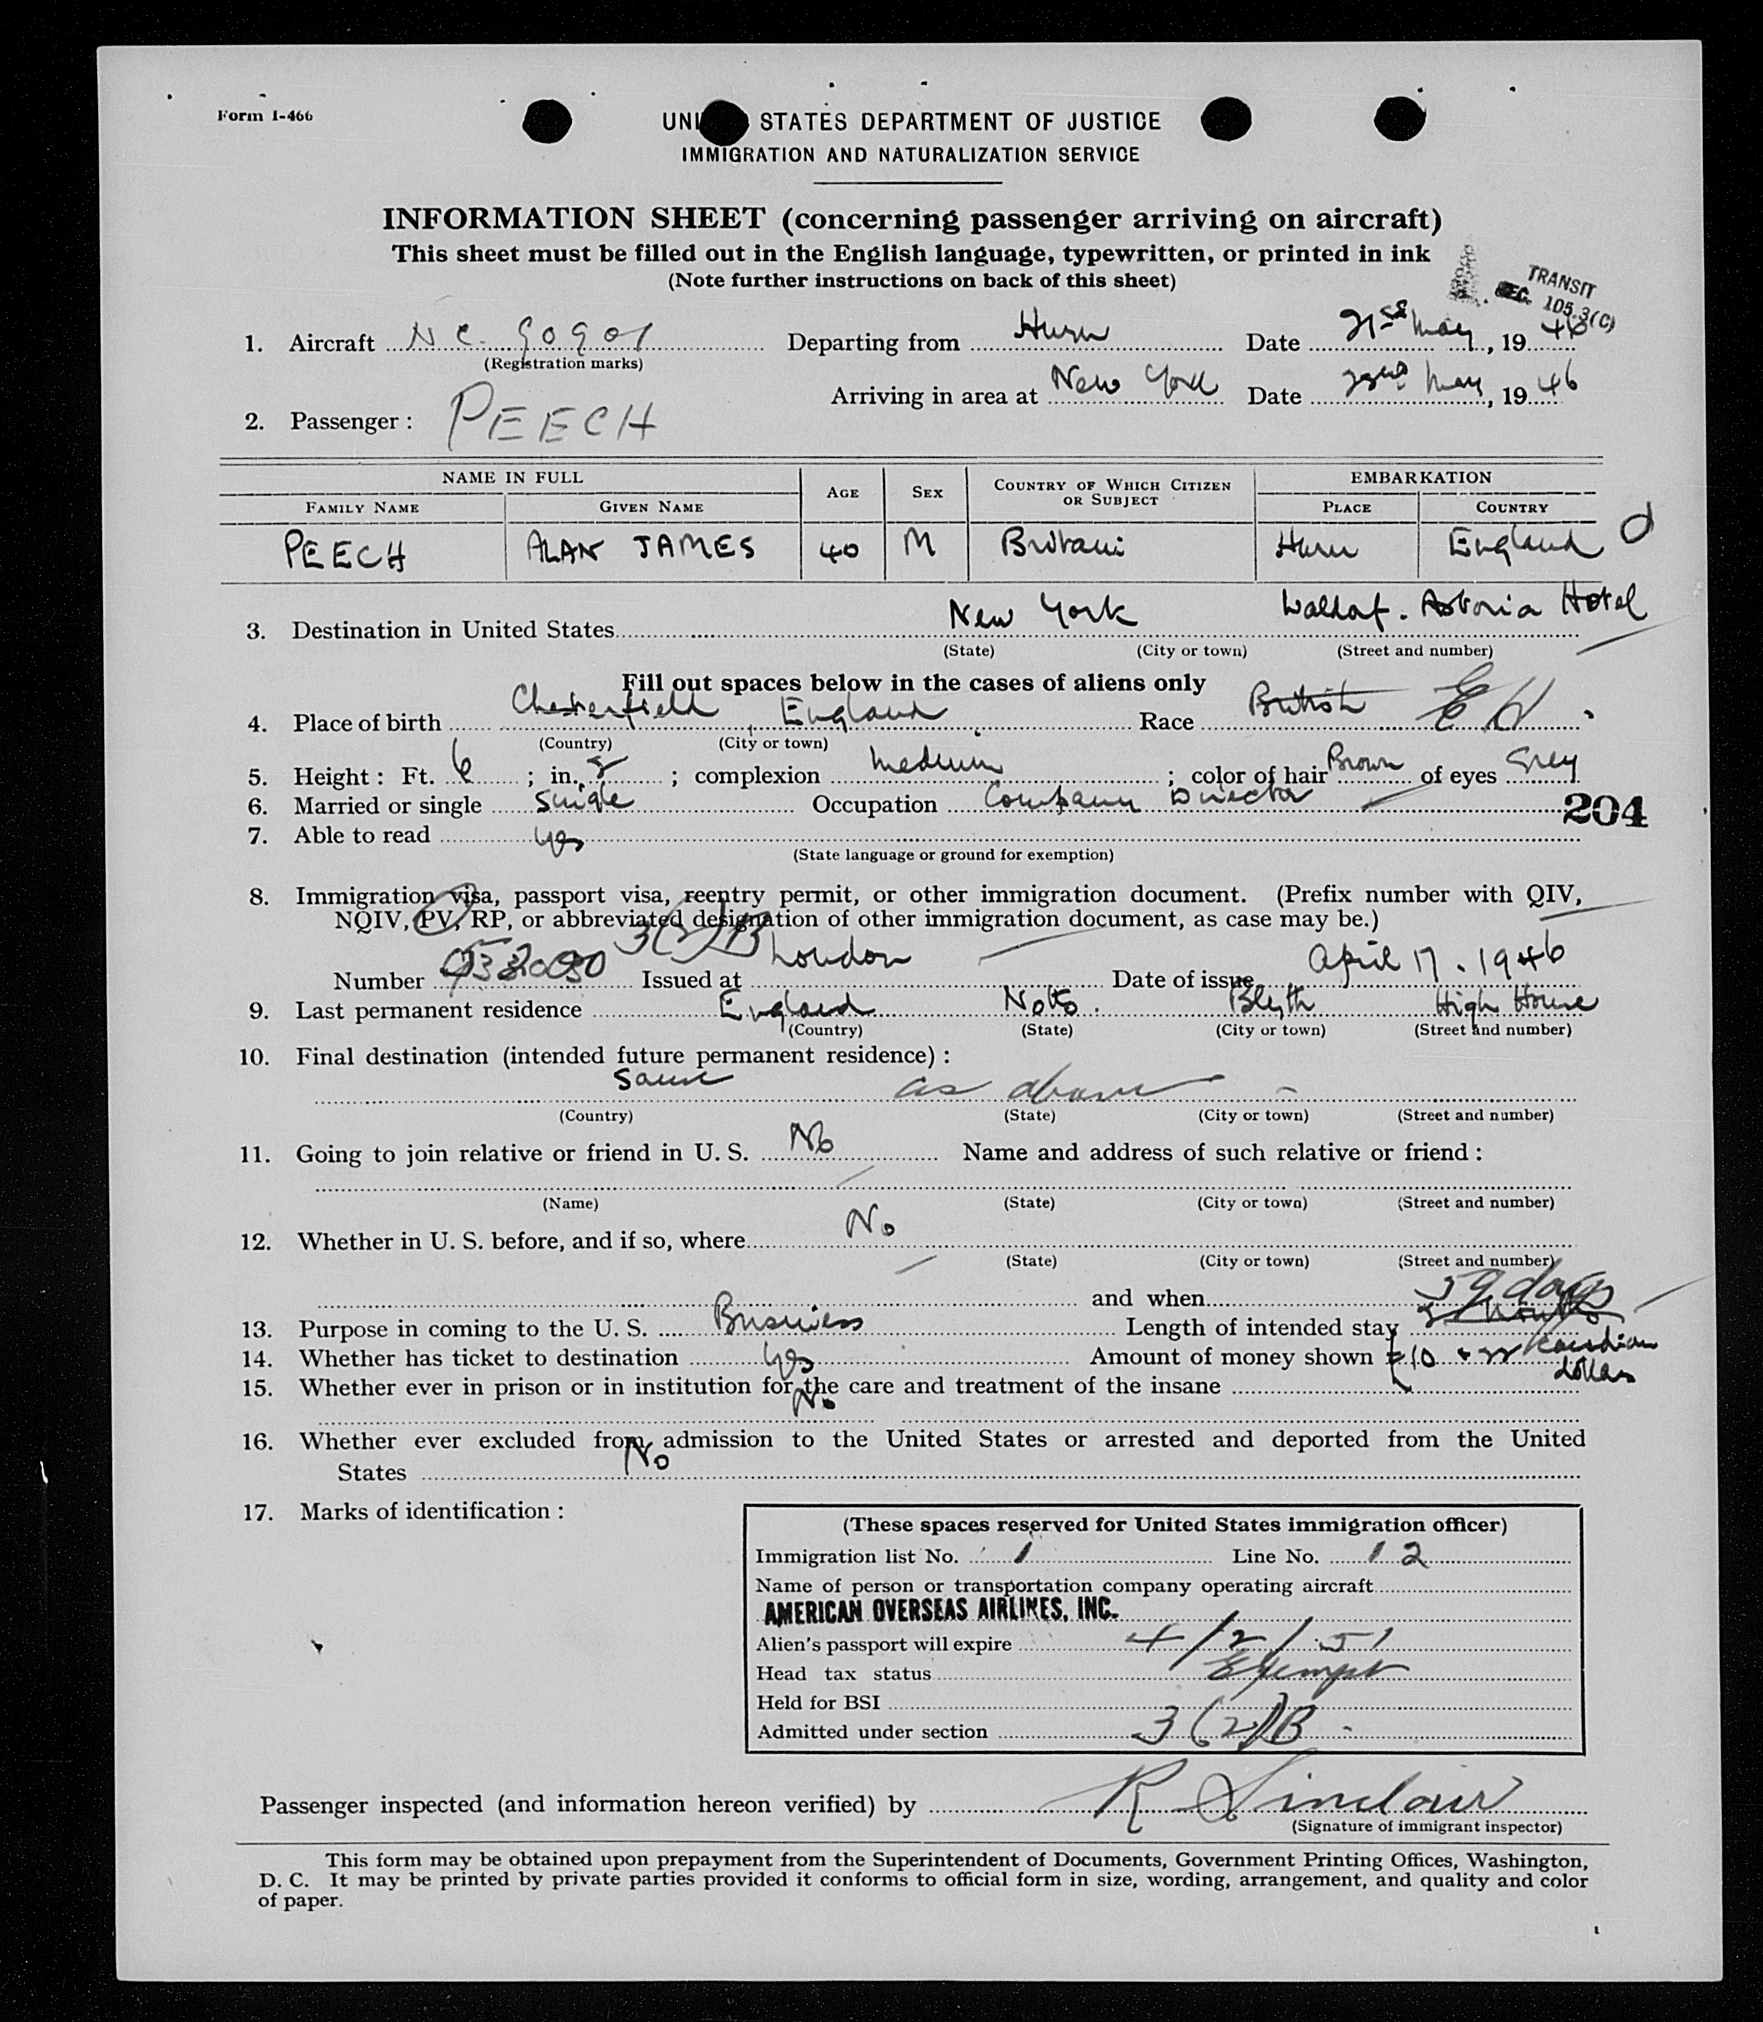 Form I-466
UNI STATES DEPARTMENT OF JUSTICE
IMMIGRATION AND NATURALIZATION SERVICE
INFORMATION SHEET (concerning passenger arriving on aircraft)
This sheet must be filled out in the English language, typewritten, or printed in ink
(Note further instructions on back of this sheet)
TRANSIT
SEC. 105.3(C)
1. Aircraft N C. 90901 Departing from Hurn Date 21st May, 1946
(Registration marks)
Arriving in area at New York Date 22nd May, 1946
2. Passenger: PEECH
NAME IN FULL AGE SEX COUNTRY OF WHICH CITIZEN OR SUBJECT EMBARKATION
FAMILY NAME GIVEN NAME PLACE COUNTRY
PEECH ALAN JAMES 40 M Britain Hurn England d
3. Destination in United States New York Waldof. Astoria Hotel
(State) (City or town) (Street and number)
Fill out spaces below in the cases of aliens only
4. Place of birth Chesterfield England Race British EH.
(Country) (City or town)
5. Height: Ft. 6; in. 2; complexion Medium; color of hair Brown of eyes Grey
6. Married or single Single Occupation Company Director
204
7. Able to read Yes
(State language or ground for exemption)
8. Immigration visa, passport visa, reentry permit, or other immigration document. (Prefix number with QIV,
NQIV, PV, RP, or abbreviated designation of other immigration document, as case may be.)
3(2)B
Number Issued at London Date of issue April 17. 1946
9. Last permanent residence England Notts. Blyth High House
(Country) (State) (City or town) (Street and number)
10. Final destination (intended future permanent residence):
Same as above -
(Country) (State) (City or town) (Street and number)
11. Going to join relative or friend in U. S. No Name and address of such relative or friend:
(Name) (State) (City or town) (Street and number)
12. Whether in U. S. before, and if so, where No
(State) (City or town) (Street and number)
and when
59 days
13. Purpose in coming to the U. S. Business Length of intended stay 2 Months
14. Whether has ticket to destination Yes Amount of money shown £10 + 22 Canadian dollars
15. Whether ever in prison or in institution for the care and treatment of the insane
No
16. Whether ever excluded from admission to the United States or arrested and deported from the United
States No
17. Marks of identification:
(These spaces reserved for United States immigration officer)
Immigration list No. 1 Line No. 12
Name of person or transportation company operating aircraft
AMERICAN OVERSEAS AIRLINES, INC.
Alien's passport will expire 4/2/51
Head tax status Exempt
Held for BSI
Admitted under section 3(2)B -
Passenger inspected (and information hereon verified) by R Sinclair
(Signature of immigrant inspector)
This form may be obtained upon prepayment from the Superintendent of Documents, Government Printing Offices, Washington,
D. C. It may be printed by private parties provided it conforms to official form in size, wording, arrangement, and quality and color
of paper.